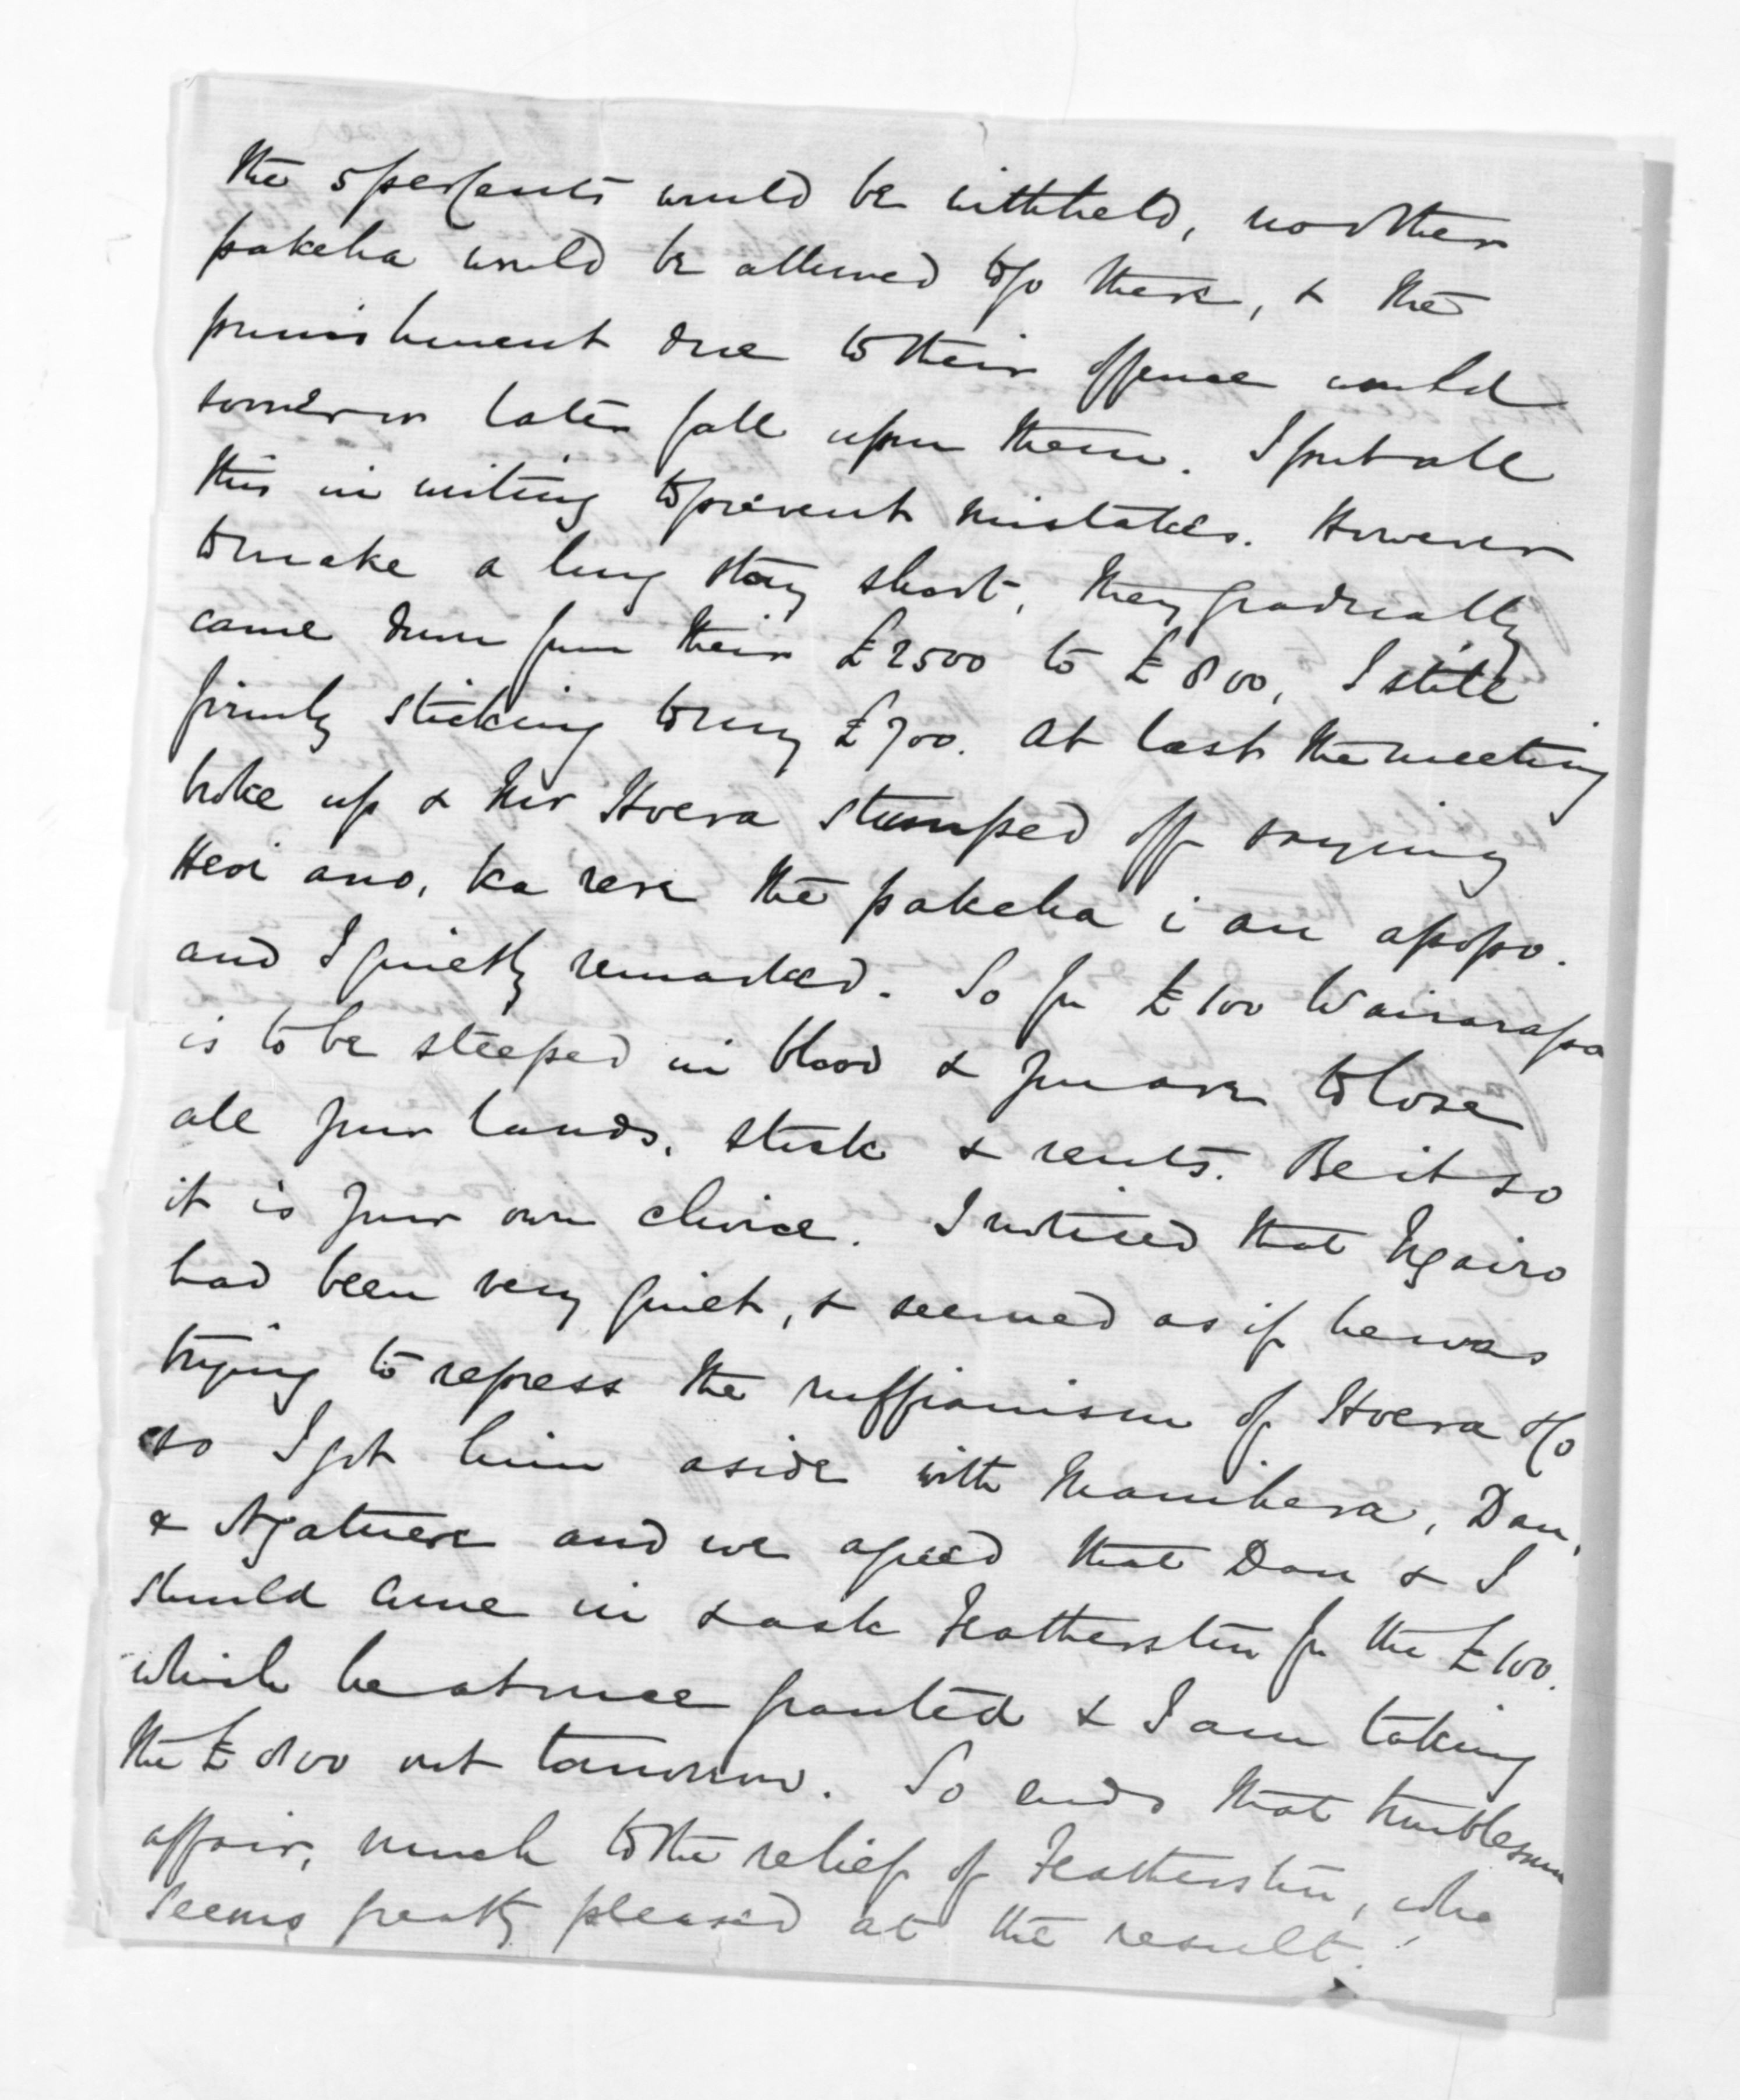 the 5 per Cents would be withheld, no other
pakeha would be allowed to go there, & the
punishment due to their offence would
sooner or later fall upon them. I put all
this in writing to prevent mistakes. However
to make a long story short, they gradually
came down from their £2500 to £800, I still
firmly sticking to my £700. At last the meeting
broke up & Mr Hoera stumped off saying
Heoi ano, ka rere the pakeha i au apopo.
and I quietly remarked. So for £100 Wairarapa
is to be steeped in blood & you are to lose
all your lands, stock & rents. Be it so
it is your own choice. I noticed that Ngairo
had been very quiet, & seemed as if he was
trying to repress the ruffianism of Hoera & Co
so I got him aside with Manihera, Dan,
& Ngatuere and we agreed that Dan & I
should come in & ask Featherston for the £100.
which he at once granted & I am taking
the £800 out tomorrow. So ends that troublesome
affair, much to the relief of Featherston, who
seems greatly pleased at the result.